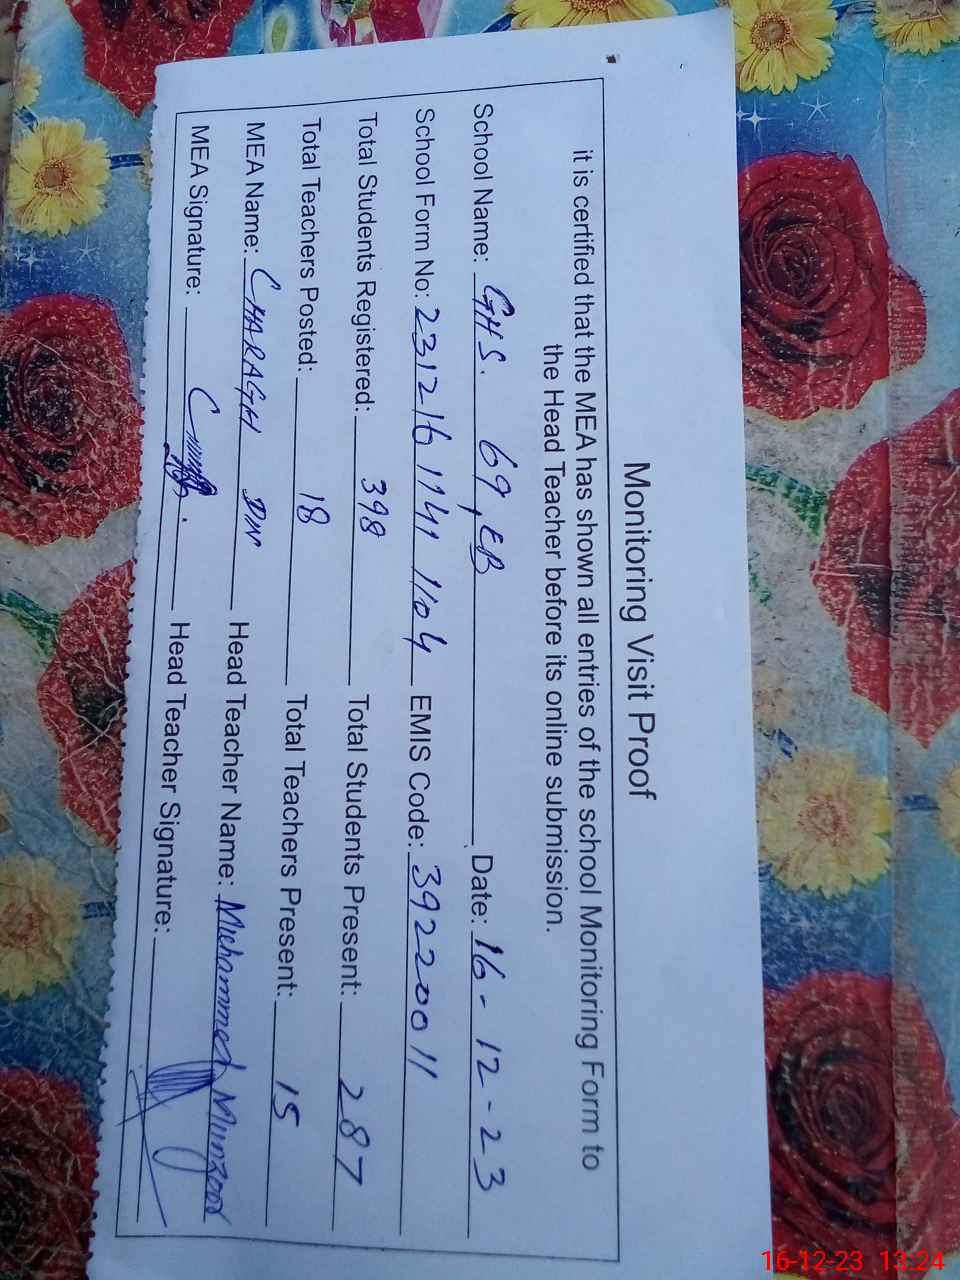 Monitoring Visit Proof
it is certified that the MEA has shown all entries of the school Monitoring Form to
the Head Teacher before its online submission.
School Name: GHS. 69, EB Date: 16-12-23
School Form No: 231216 1141 1104 EMIS Code: 39220011
Total Students Registered: 398 Total Students Present: 287
Total Teachers Posted: 18 Total Teachers Present: 15
MEA Name: CHARAGH DIN Head Teacher Name: Muhammad Munzoor
MEA Signature: Head Teacher Signature:
16-12-23 13:24